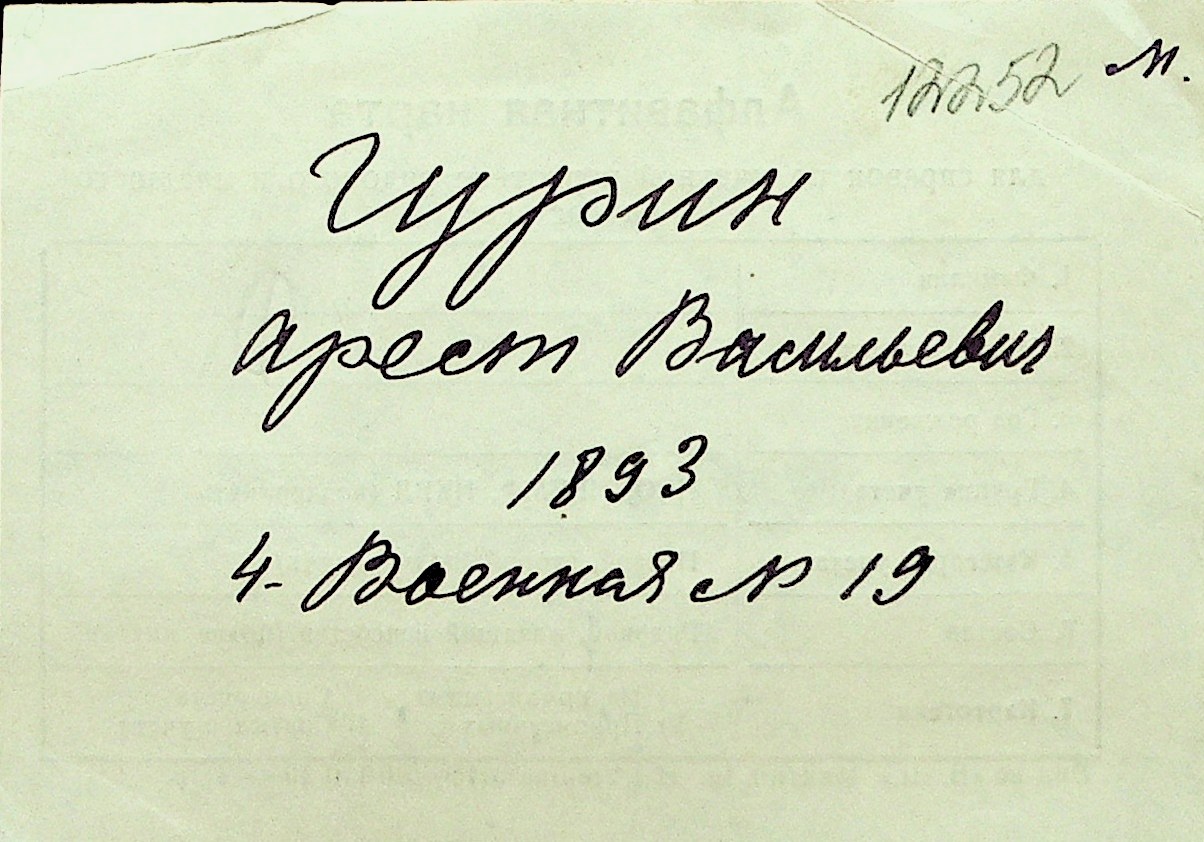 12252 м.
Гурин
Арест Васильевич
1893
4-Военная № 19